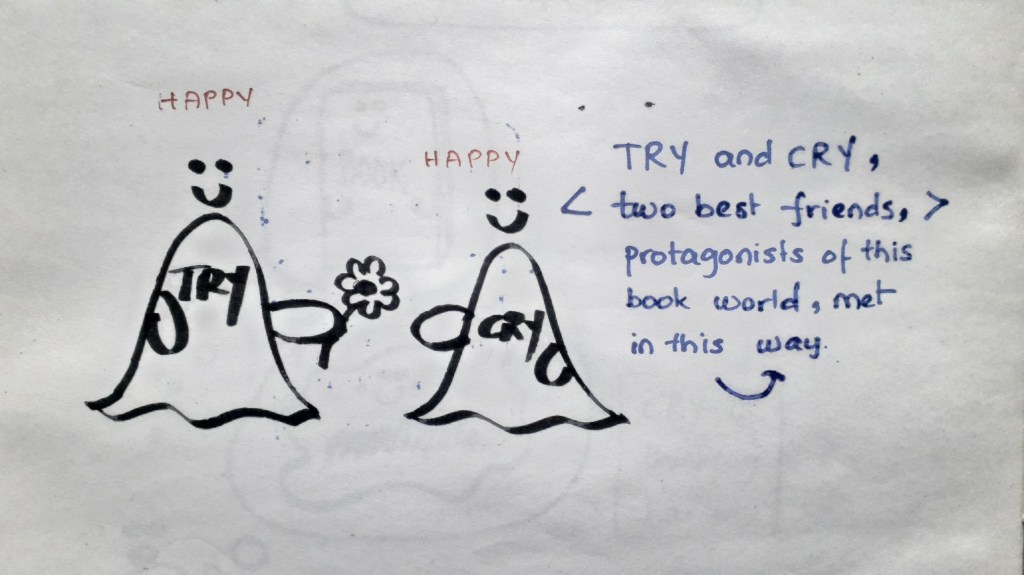 HAPPY
HAPPY
TRY
CRY
TRY and CRY,
< two best friends, >
protagonists of this
book world, met
in this way.